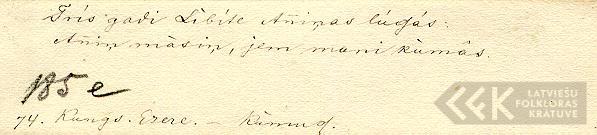 Trīs gadi Lībīte Aņiņas lúdzás:
Aņiņ māsiņ, jem mani kūmâs.
185 e
74. Kungs. Ezere. –
LATVIEŠU
FOLKLORAS
KRĀTUVE